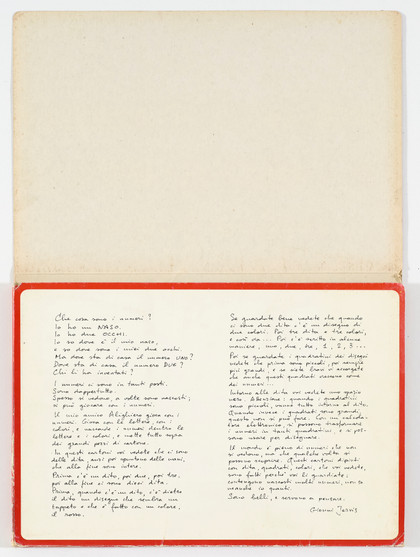 Che cosa sono i numeri?
Io ho un NASO.
Io ho due OCCHI.
Io so dove è il mio naso,
e so dove sono i miei due occhi.
Ma dove sta di casa il numero UNO?
Dove sta di casa il numero DUE?
Chi li ha inventati?
I numeri ci sono in tanti posti,
Sono dappertutto.
Spesso si vedono, a volte sono nascosti;
si può giocare con i numeri.
Il mio amico Alighiero gioca con i
numeri. Gioca con le lettere, con i
colori, e nasconde i numeri dentro le
lettere e i colori, e mette tutto sopra
dei grandi pezzi di cartone.
In questi cartoni voi vedete che ci sono
delle dita, anzi poi spuntano delle mani,
che alla fine sono intere.
Prima c'è un dito, poi due, poi tre,
poi alla fine ci sono dieci dita.
Prima, quando c'è un dito, c'è dietro
il dito un disegno che sembra un
tappeto e che è fatto con un colore,
il rosso.
Se guardate bene vedete che quando
ci sono due dita c'è un disegno di
due colori. Poi tre dita e tre colori,
e così via... Poi c'è scritto in alcune
maniere, uno, due, tre, 1, 2, 3...
Poi se guardate i quadratini dei disegni
vedete che prima sono piccoli, poi sempre
più grandi, e se siete bravi vi accorgete
che anche questi quadrati crescono come
dei numeri...
Intorno alle dita voi vedete uno spazio
vero. Attenzione: quando i quadratini
sono piccoli, vanno tutto intorno al dito.
Quando invece i quadrati sono grandi,
questo non si può fare. Con un calcola-
tore elettronico, si possono trasformare
i numeri in tanti quadratini, e si pos-
sono usare per disegnare.
Il mondo è pieno di numeri che non
si vedono, ma che qualche volta si
possono scoprire. Questi cartoni dipinti
con dita, quadrati, colori, che voi vedete,
sono fatti perché voi li guardiate;
contengono nascosti molti numeri, non so
neanche io quanti.
Sono belli, e servono a pensare.
Giovanni Jervis